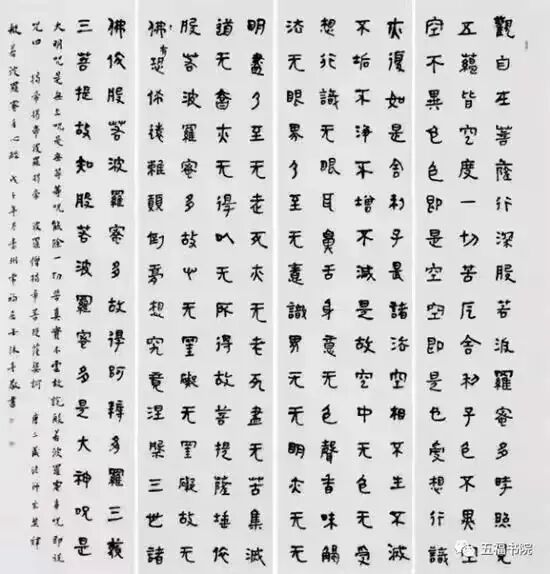 觀自在菩薩行深般若波羅蜜多時照見
五蘊皆空度一切苦厄舍利子色不異空
空不異色色即是空空即是色受想行識
亦復如是舍利子是諸法空相不生不滅
不垢不淨不增不減是故空中无色无受
想行識无眼耳鼻舌身意无色聲香味觸
法无眼界乃至无意識界无无明亦无无
明盡乃至无老死亦无老死盡无苦集滅
道无智亦无得以无所得故菩提薩埵依
般若波羅蜜多故心无罣礙无罣礙故无
佛有恐怖遠離顛倒夢想究竟涅槃三世諸
佛依般若波羅蜜多故得阿耨多羅三藐
三菩提故知般若波羅蜜多是大神咒是
大明咒是無上咒是無等等咒能除一切苦真實不虛故說般若波羅蜜多咒即說
咒曰 揭帝揭帝波羅揭帝 波羅僧揭帝菩提薩婆訶 唐三藏法師玄奘譯
般若波羅蜜多心經 戊子年 敬書
五福书院